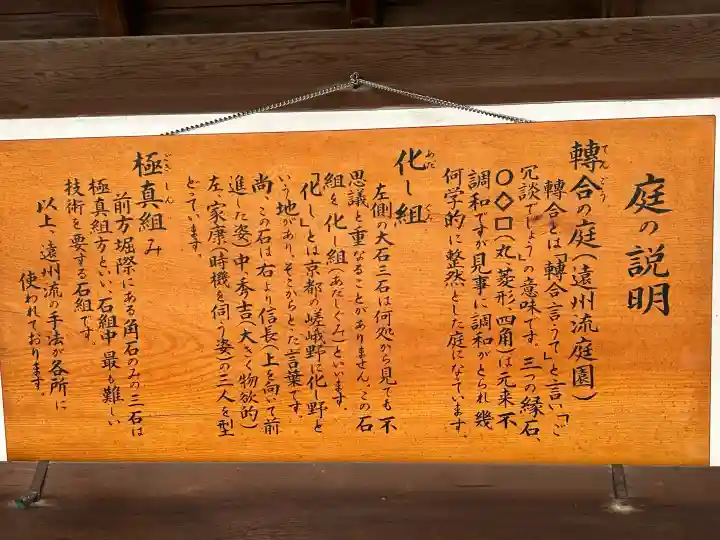 庭の説明
轉合の庭(遠州流庭園)
てんごう
轉合とは「轉合言うて」と言い「ご
冗談でしょう」の意味です。三つの縁石、
○◇□(丸、菱形、四角)は元来不
調和ですが見事に調和がとられ幾
何学的に整然とした庭になっています。
化し組
あだ ぐみ
左側の大石三石は何処から見ても不
思議と重なることがありません。この石
組を化し組(あだしぐみ)といいます。
「化し」とは京都の嵯峨野に化し野と
いう地があり、そこからとった言葉です。
尚、この石は右より信長(上を向いて前
進した姿)中、秀吉(大きく物欲的)
左、家康(時機を伺う姿)の三人を型
どっています。
極真組み
ごくしんく
前方堀際にある角石のみの三石は
極真組方といい、石組中最も難しい
技術を要する石組です。
以上、遠州流の手法が各所に
使われております。